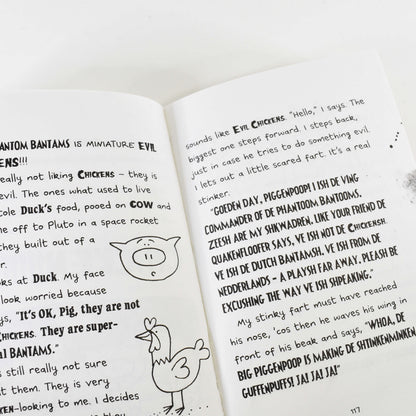 HANTOM BANTAMS IS MINIATURE EVIL
KENS!!!
really not liking CHICKENS – they is
evil. The ones what used to live
tole Duck's food, pooed on COW and
me off to Pluto in a space rocket
they built out of a
oks at Duck. My face
look worried because
ys, "It's OK, Pig, they are not
CHICKENS. They are super-
al BANTAMS."
s still really not sure
t them. They is very
KEN-looking to me. I decides
sounds like EVIL CHICKENS. "Hello," I says. The
biggest one steps forward. I steps back,
just in case he tries to do something evil.
I lets out a little scared fart. It's a real
stinker.
"GOEDEN DAY, PIGGENPOOP! I ISH DE VING
COMMANDER OF DE PHANTOOM BANTOOMS.
ZEESH ARE MY SHKWADREN. LIKE YOUR FRIEND DE
QUAKENFLOOFER SAYS, VE ISH NOT DE CHICKENSH.
VE ISH DE DUTCH BANTAMSH. VE ISH FROM DE
NEDDERLANDS – A PLAYSH FAR AWAY. PLEASH BE
EXCUSHING THE WAY VE ISH SHPEAKING."
My stinky fart must have reached
his nose, 'cos then he waves his wing in
front of his beak and says, "WHOA, DE
BIG PIGGENPOOP IS MAKING DE SHTINKENMINKEN
GUFFENPUFFS! JA! JA! JA!"
117